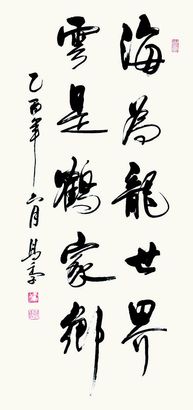 海為龍世界
雲是鶴家鄉
乙酉年六月馬季